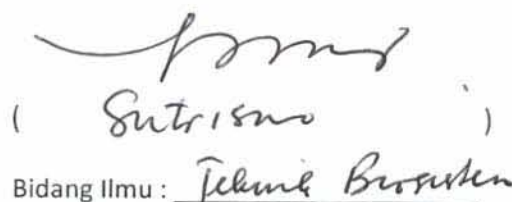 ( Sutrisno )
Bidang Ilmu : Teknik Biosistem